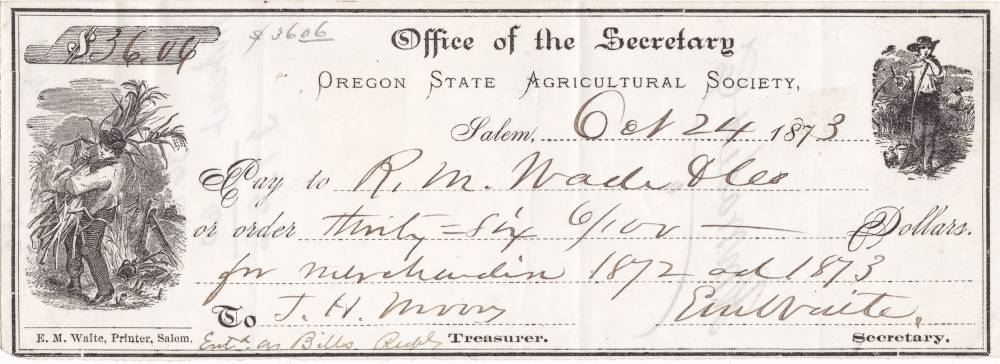 $36.06
$3606
Office of the Secretary
OREGON STATE AGRICULTURAL SOCIETY,
Salem, Oct 24 1873
Pay to R. M. Wade & Co
or order thirty-six 6/100 — Dollars.
for merchandise 1872 ad 1873
To J. H. Moores E M Waite,
E. M. Waite, Printer, Salem. Treasurer. Secretary.
Entd as Bills